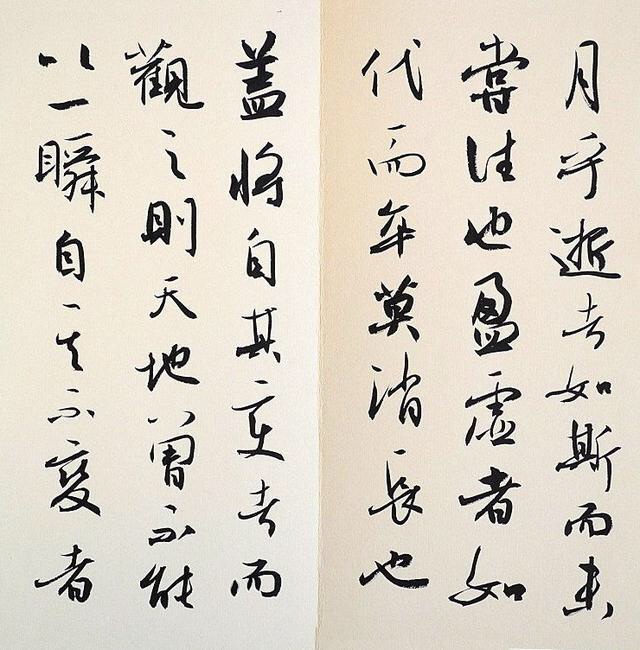 月乎逝者如斯而未
嘗往也盈虛者如
代而卒莫消長也
盖將自其變者而
觀之則天地曾不能
以一瞬自其不變者